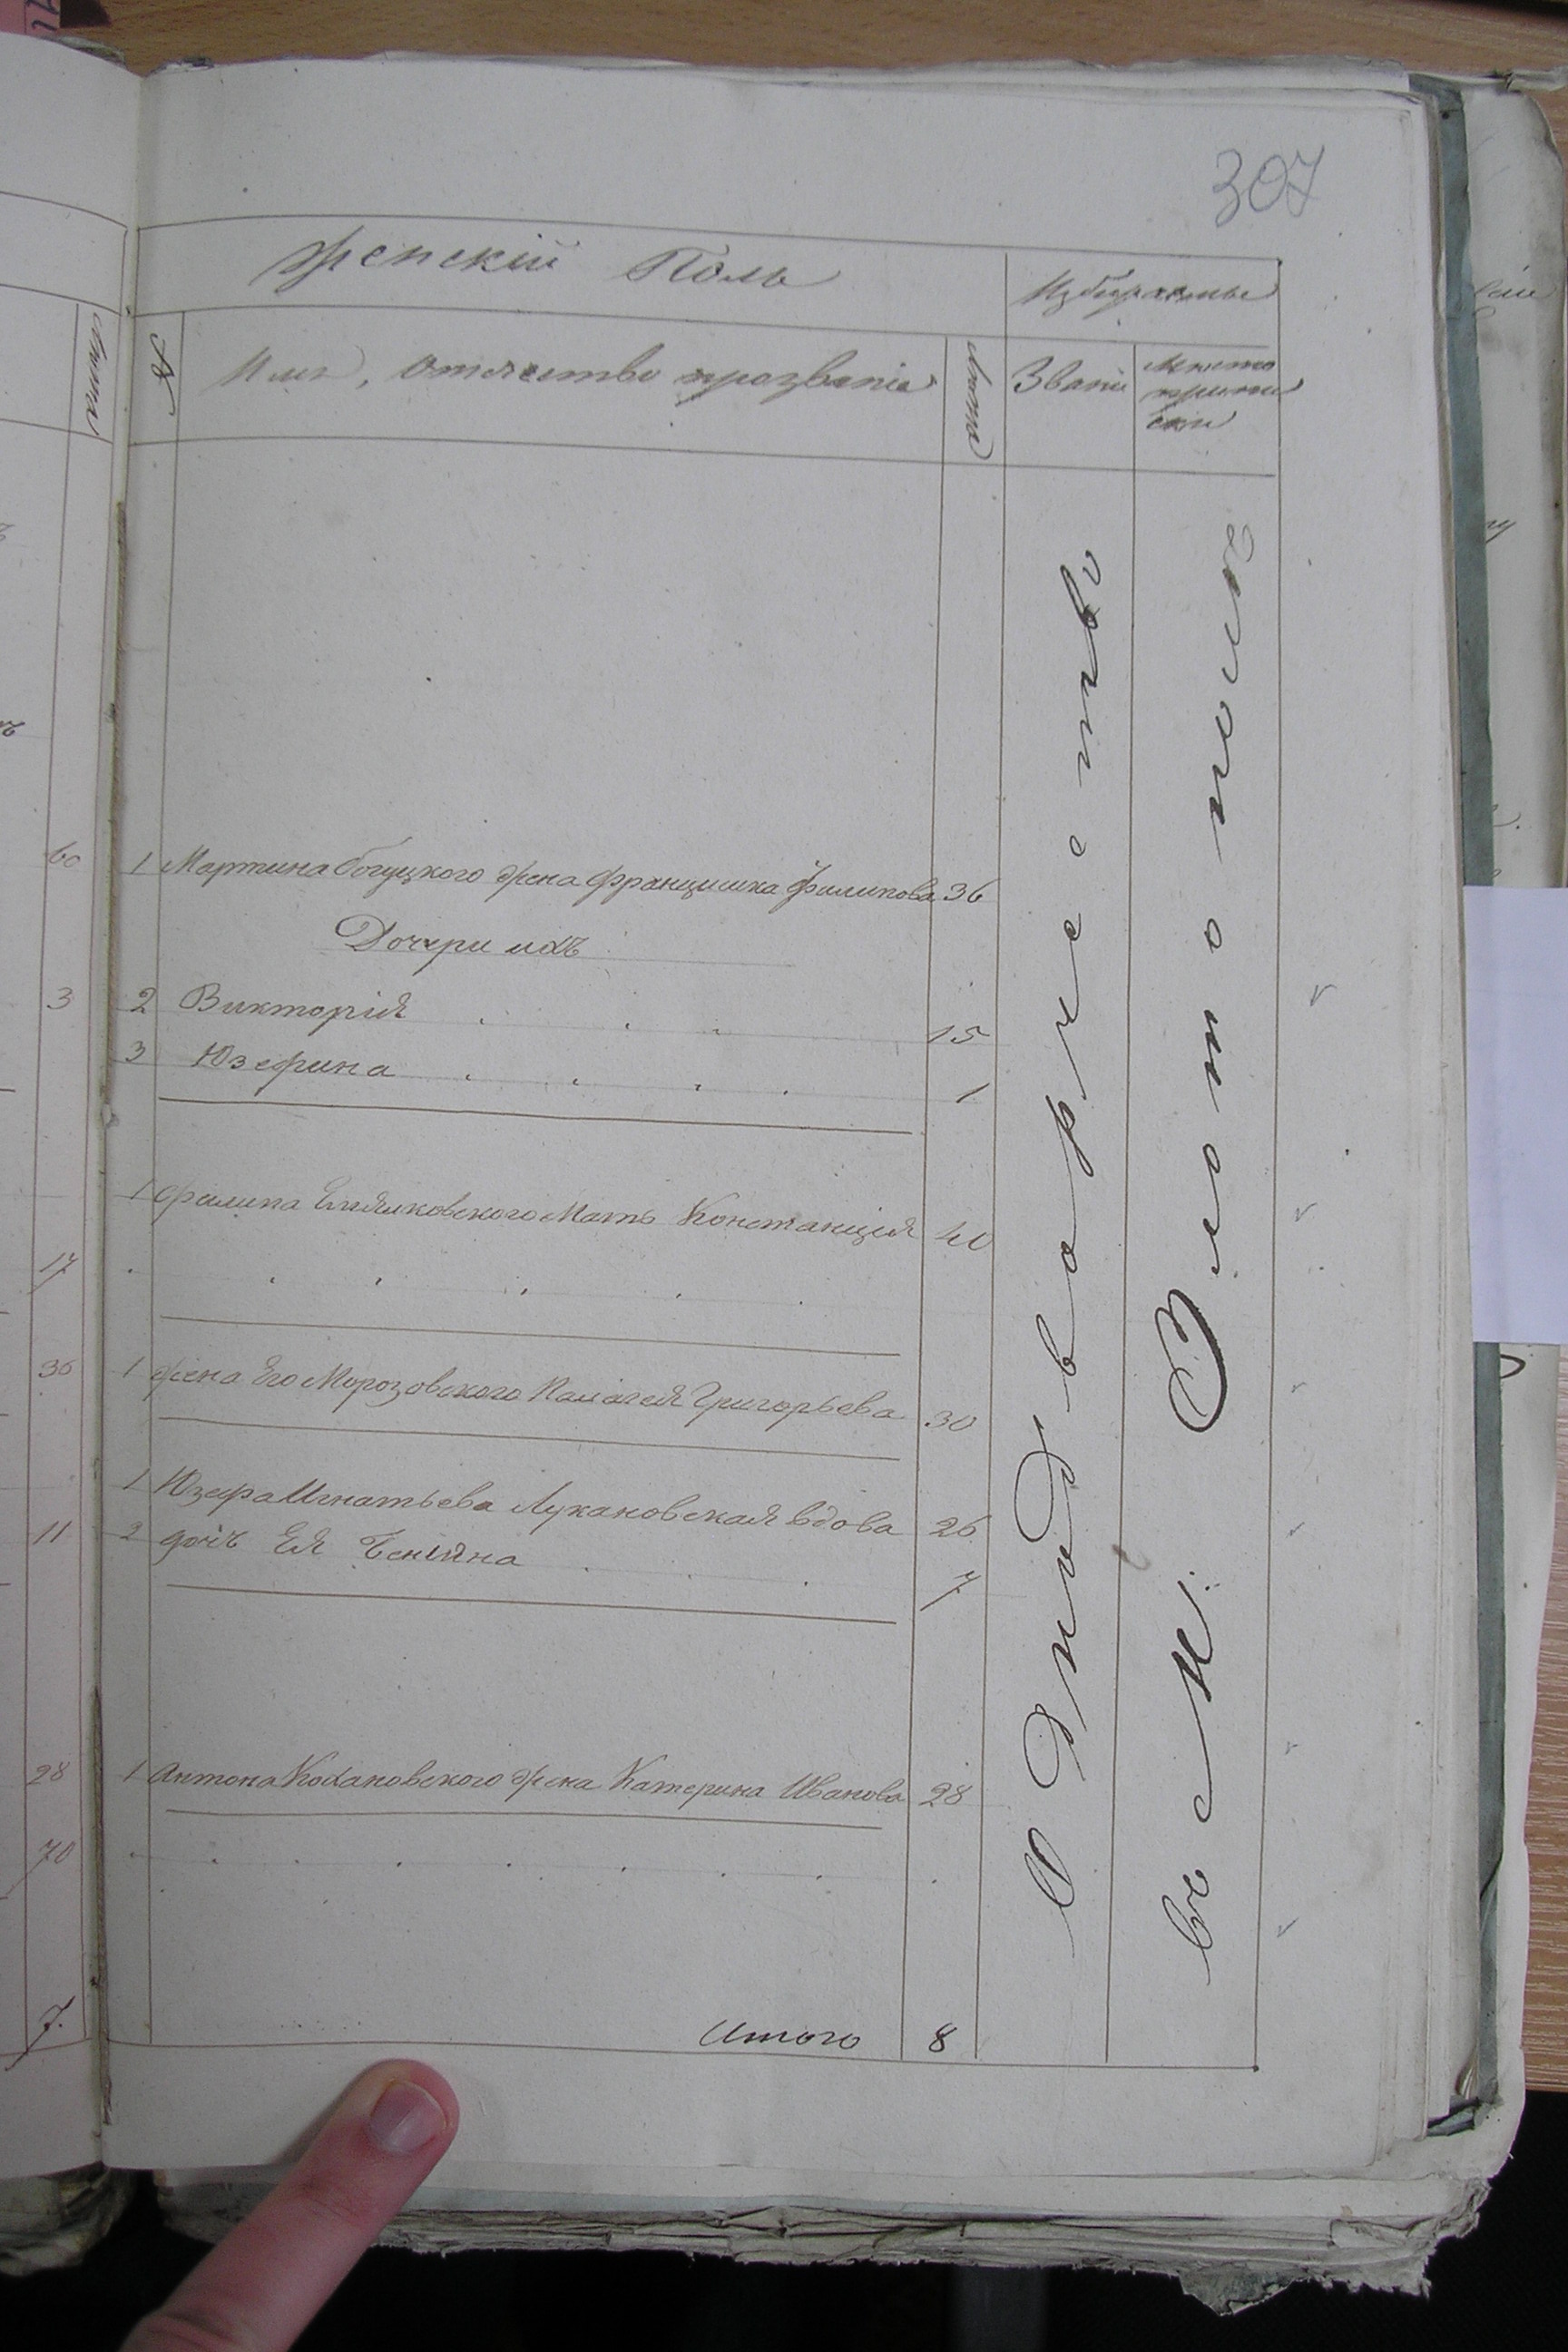 307
Женскій Полъ
Избираемые
лета
№
Имя, Отчество прозваніе
лета
Званіе
Место
приписки
60
1 Мартина Богуцкого жена Францишка Филипова 36
Дочери ихъ
3
2 Викторія 15
3 Юзефина 1
1 Филипа мать Констанція 40
17
36
1 жена Его Морозовского Палагея Григорьева 30
1 Юзефа Игнатьева Лукановская вдова 26
11
2 дочь Ея 7
28
1 Антона Кохановского жена Катерина Иванова 28
70
Итого 8
7.
Однодворчество
въ М: Златополь